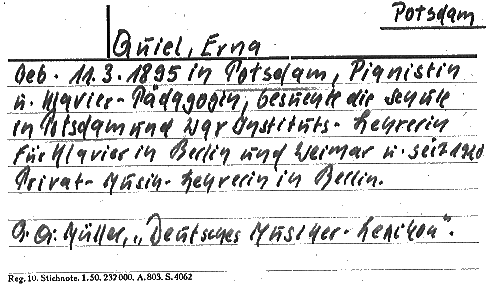 Potsdam
Quiel, Erna
Geb. 11.3.1895 in Potsdam, Pianistin
u. Klavier-Pädagogin, besuchte die Schule
in Potsdam und war Instituts-Lehrerin
für Klavier in Berlin und Weimar u. seit
Privat-Musik-Lehrerin in Berlin.
Müller, „Deutsches Musiker-Lexikon".
Reg. 10. Stichnote. 1. 50. 232000. A. 803. S. 4062